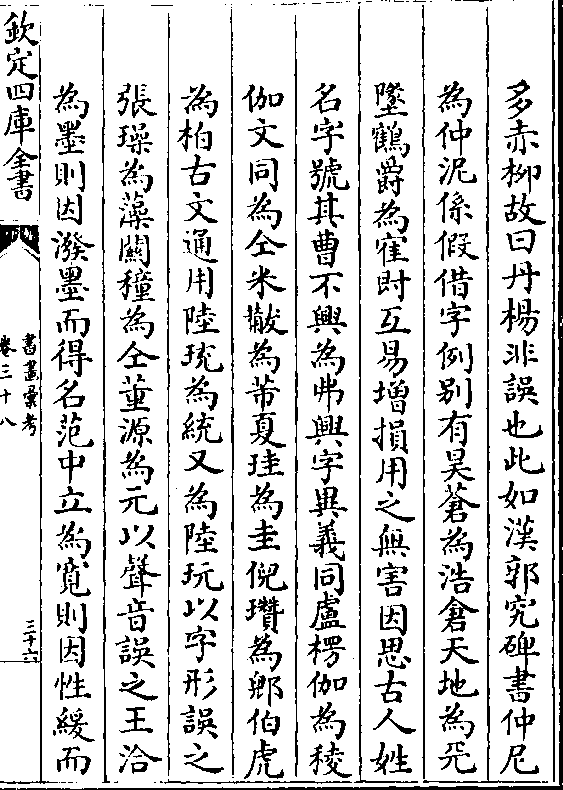 多赤柳故曰丹楊非誤也此如漢郭究碑書仲尼
為仲泥係假借字例别有昊蒼為浩倉天地為兲
墬鶴爵為隺时互易増損用之無害因思古人姓
名字號其曹不興為弗興字異義同盧楞伽為稜
伽文同為仝米黻為芾夏珪為圭倪瓚為鄉伯虎
為柏古文通用陸珫為統又為陸玩以字形誤之
張璪為藻闗穜為仝董源為元以聲音誤之王洽
為墨則因潑墨而得名范中立為寛則因性緩而
欽定四庫全書
書畫彚考
卷三十八
三十六